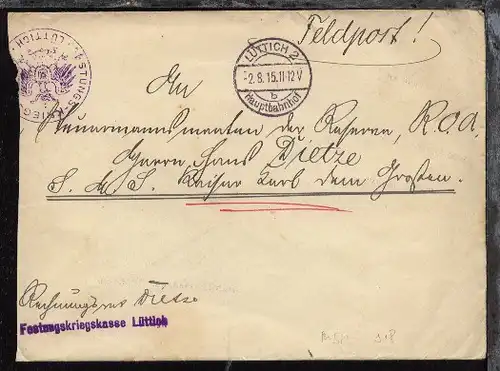 Feldpost!
LÜTTICH 2
-2.8.15.11-12V
b
Hauptbahnhof
LÜTTICH
An
Steuermannsmaaten der Reserve, R.O.A.
Herrn Hans Dietze
S. M. S. Kaiser Karl dem Großen.
Rechnungsrat Dietze
Festungskriegskasse Lüttich